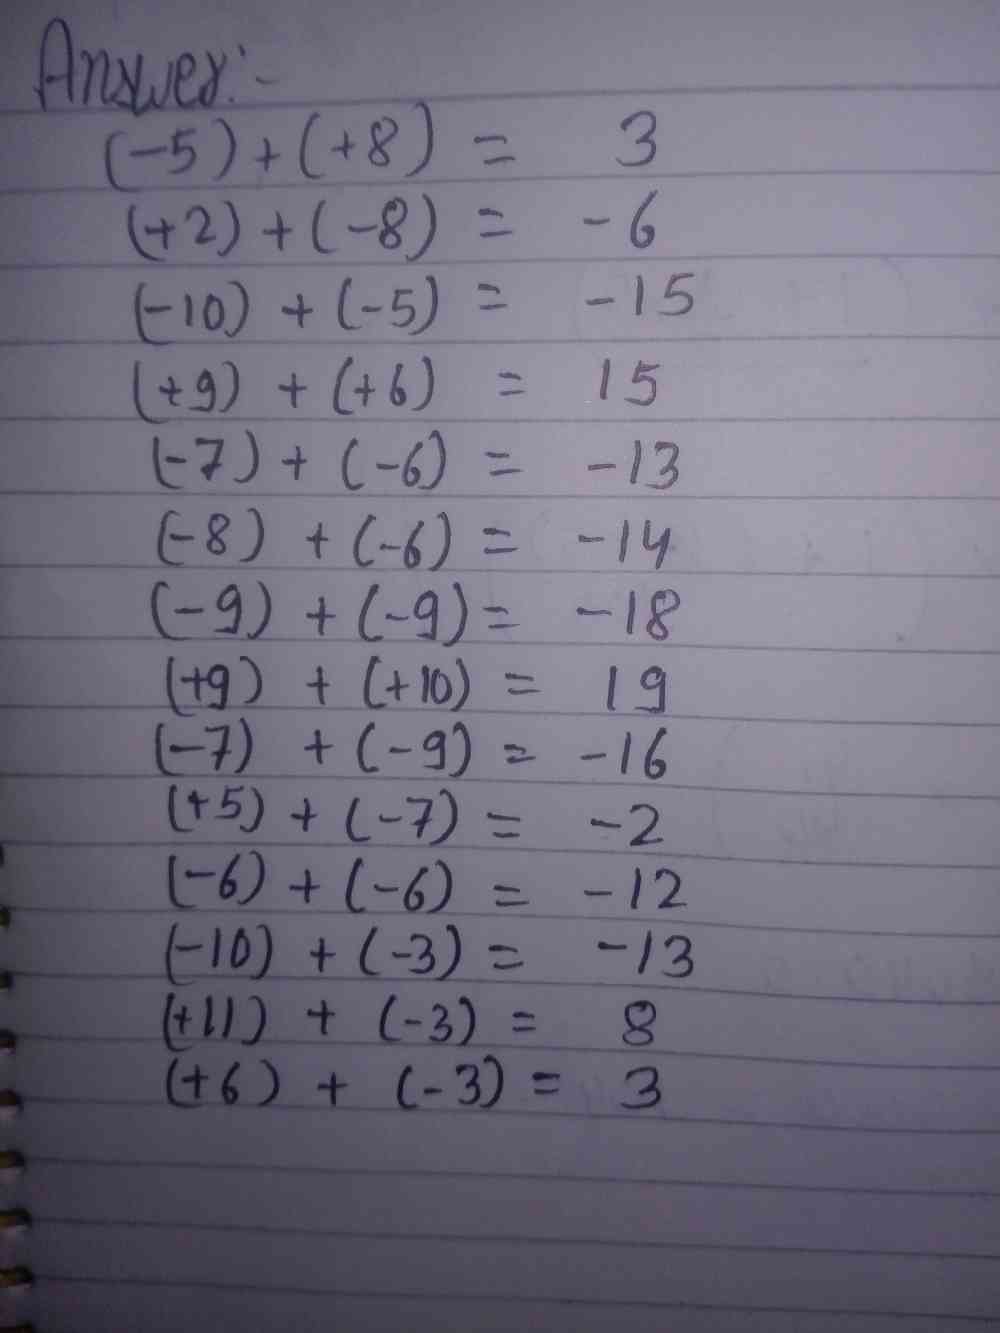 Answer:-
(-5) + (+8) = 3
(+2) + (-8) = -6
(-10) + (-5) = -15
(+9) + (+6) = 15
(-7) + (-6) = -13
(-8) + (-6) = -14
(-9) + (-9) = -18
(+9) + (+10) = 19
(-7) + (-9) = -16
(+5) + (-7) = -2
(-6) + (-6) = -12
(-10) + (-3) = -13
(+11) + (-3) = 8
(+6) + (-3) = 3